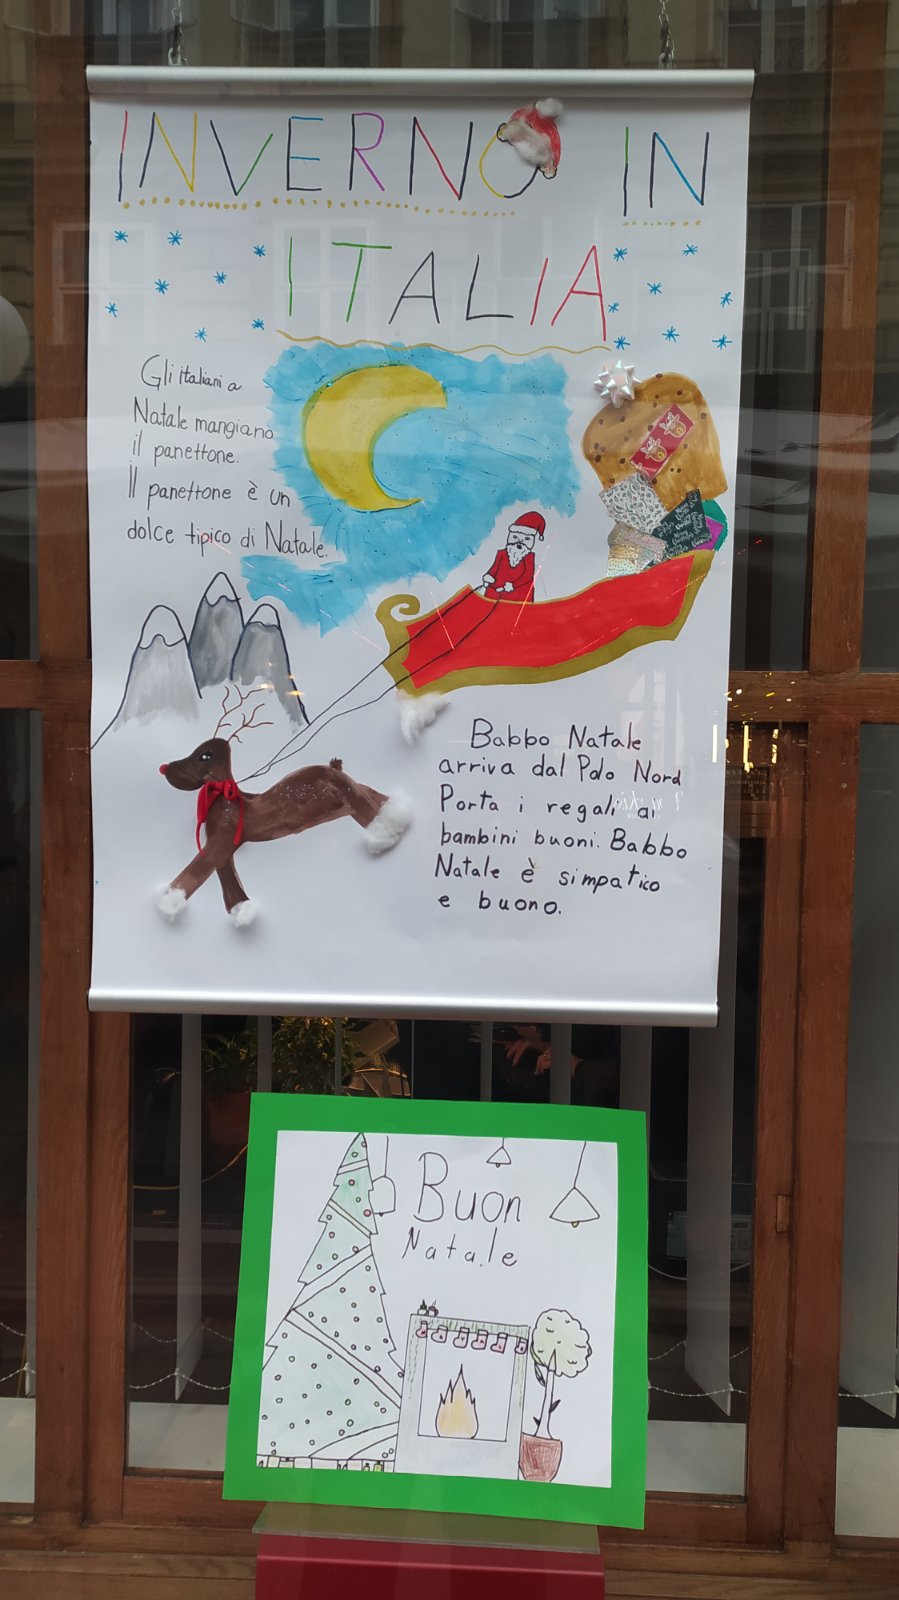 INVERNO IN
ITALIA
Gli italiani a
Natale mangiano
il panettone.
Il panettone è un
dolce tipico di Natale.
Babbo Natale
arriva dal Polo Nord
Porta i regali ai
bambini buoni. Babbo
Natale è simpatico
e buono.
Buon
Natale